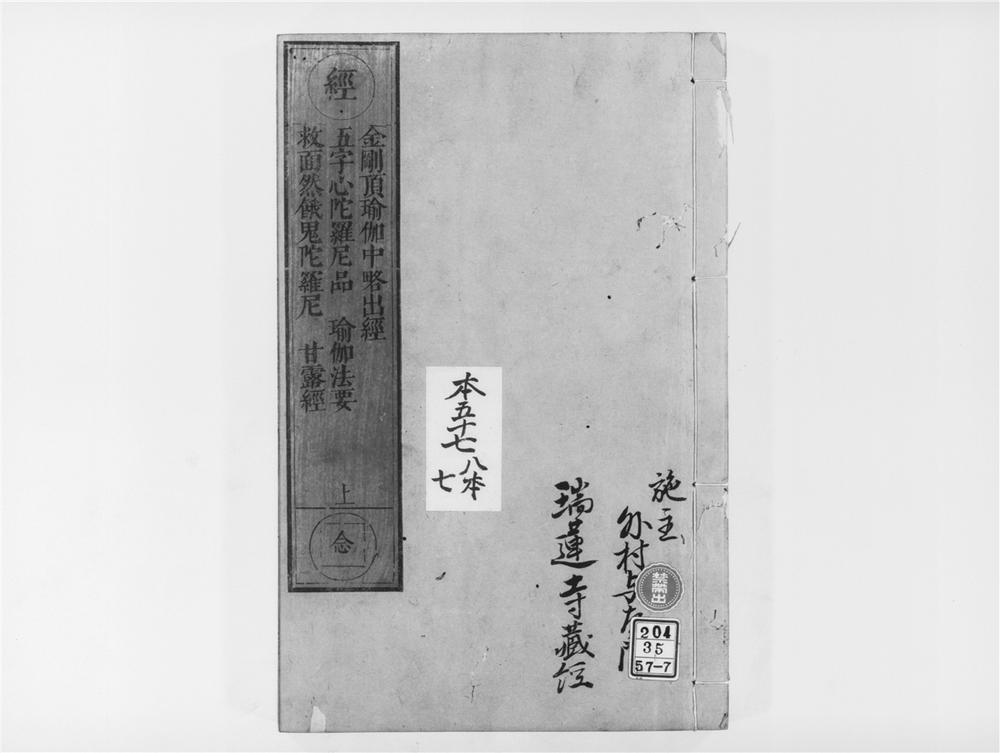 經
金剛頂瑜伽中略出經
五字心陀羅尼品 瑜伽法要
救面然餓鬼陀羅尼 甘露經
上
念
本五十七 八本
七
施主
外村与左門
瑞蓮寺藏経
禁帶出
204
35
57-7